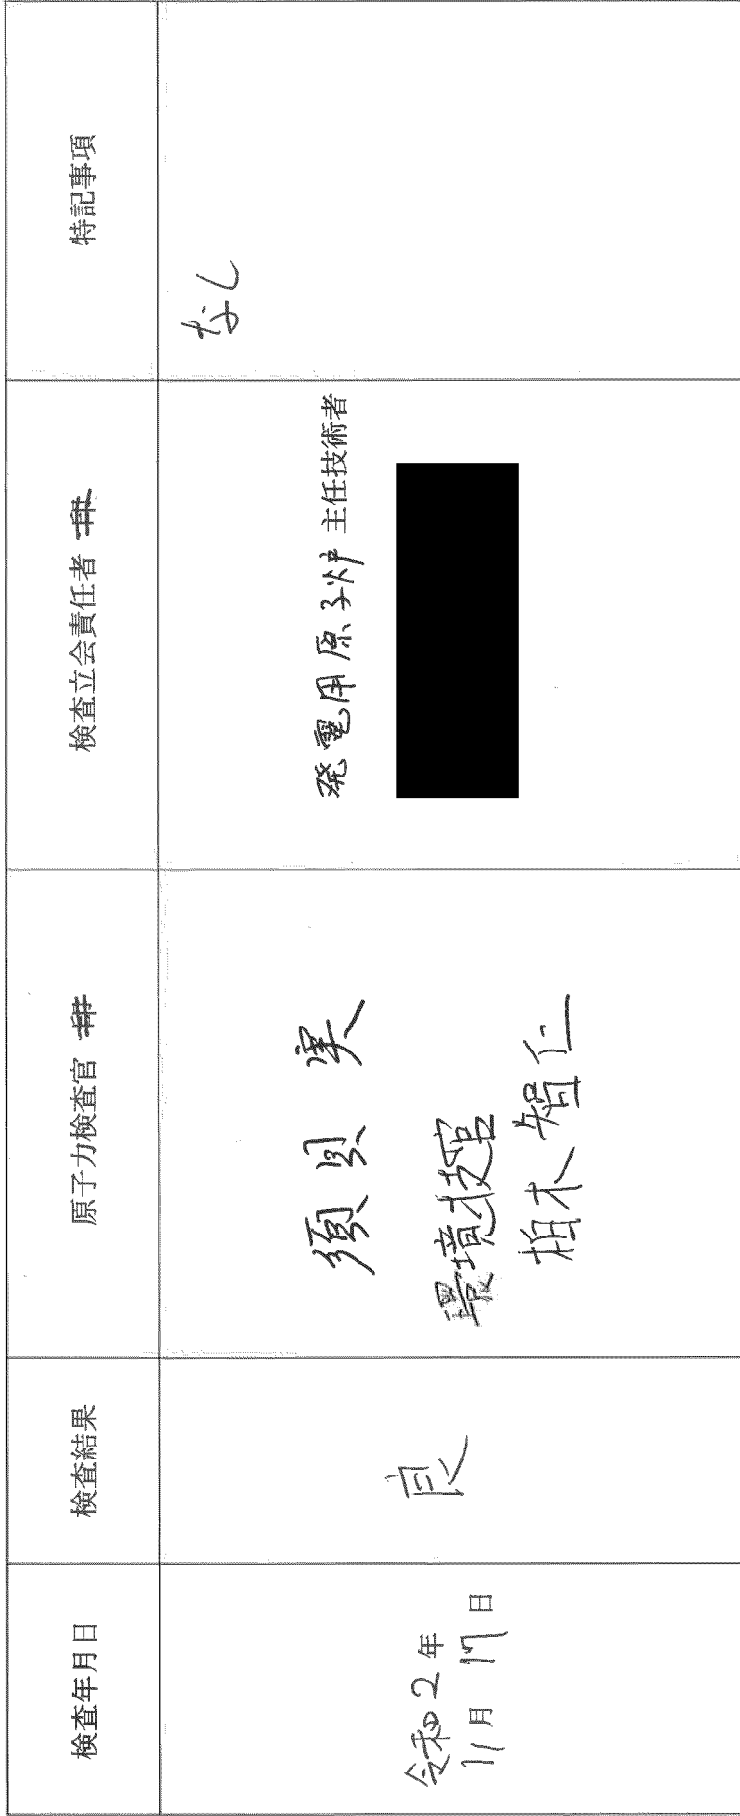 検査年月日
検査結果
原子力検査官 印
検査立会責任者 印
特記事項
令和2年
11月 17日
良
須貝 実
環境技官
柏木智仁
発電用原子炉 主任技術者
なし